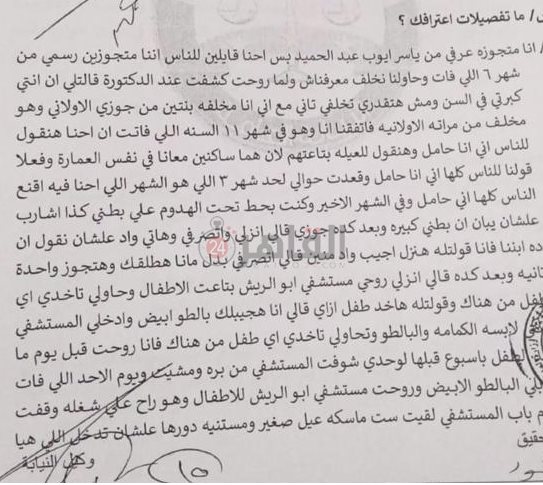 / ما تفصيلات اعترافك ؟
/ انا متجوزه عرفي من ياسر ايوب عبد الحميد بس احنا قايلين للناس اننا متجوزين رسمي من
شهر ٦ اللي فات وحاولنا نخلف معرفناش ولما روحت كشفت عند الدكتورة قالتلي ان انتي
كبرتي في السن ومش هتقدري تخلفي تاني مع اني انا مخلفه بنتين من جوزي الاولاني وهو
مخلف من مراته الاولانيه فاتفقنا انا وهو في شهر ١١ السنه اللي فاتت ان احنا هنقول
للناس اني انا حامل وهنقول للعيله بتاعتهم لان هما ساكنين معانا في نفس العمارة وفعلا
قولنا للناس كلها اني انا حامل وقعدت حوالي لحد شهر ٣ اللي هو الشهر اللي احنا فيه اقنع
الناس كلها اني حامل وفي الشهر الاخير وكنت بحط تحت الهدوم علي بطني كذا اشارب
علشان يبان ان بطني كبيره وبعد كده جوزي قالي انزلي واتصرفي وهاتي واد علشان نقول ان
ده ابننا فانا قولتله هنزل اجيب واد منين قالي اتصرفي بدل مانا هطلقك وهتجوز واحدة
تانيه وبعد كده قالي انزلي روحي مستشفي ابو الريش بتاعت الاطفال وحاولي تاخدي اي
طفل من هناك وقولتله هاخد طفل ازاي قالي انا هجيبلك بالطو ابيض وادخلي المستشفي
لابسه الكمامه والبالطو وتحاولي تاخدي اي طفل من هناك فانا روحت قبل يوم ما
الطفل باسبوع قبلها لوحدي شوفت المستشفي من بره ومشيت ويوم الاحد اللي فات
البالطو الابيض وروحت مستشفي ابو الريش للاطفال وهو راح علي شغله وقفت
باب المستشفي لقيت ست ماسكه عيل صغير ومستنيه دورها علشان تدخل اللي هيا
وكيل النيابة
القاهرة 24